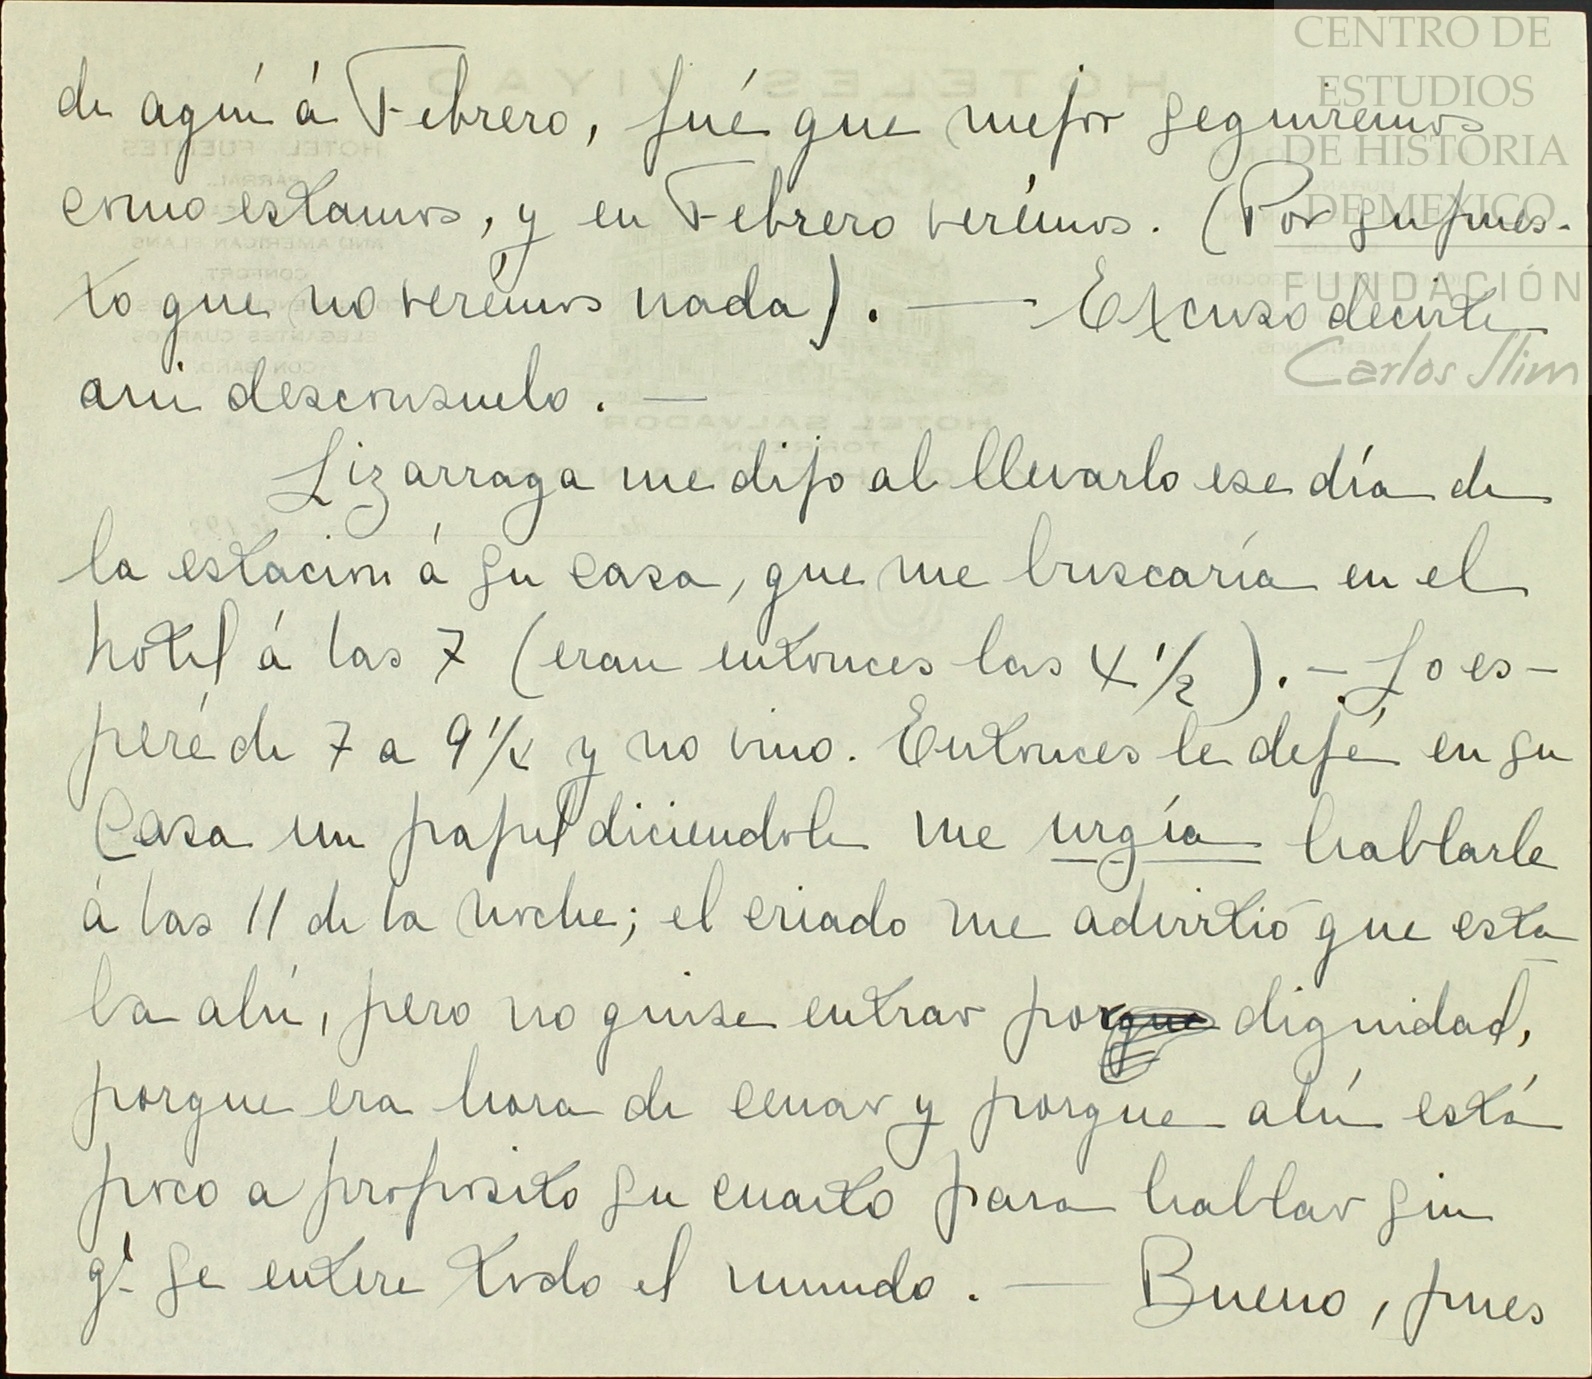 CENTRO DE
ESTUDIOS
DE HISTORIA
DE MEXICO
FUNDACIÓN
Carlos Slim
de aquí á Febrero, fué que mejor seguiremos
como estamos, y en Febrero verémos. (Por supues-
to que no verémos nada). — Excuso decirte
mi desconsuelo. —
Lizarraga me dijo al llevarlo ese día de
la estacion á su casa, que me buscaría en el
hotel á las 7 (eran entonces las 4 1/2). — Lo es-
peré de 7 a 9 1/4 y no vino. Entonces le dejé en su
Casa un papel diciendole me urgía hablarle
á las 11 de la noche; el criado me advirtió que esta
ba ahí, pero no quise entrar por dignidad,
porque era hora de cenar y porque ahí está
poco a proposito su cuarto para hablar sin
q.e se entere todo el mundo. — Bueno, pues